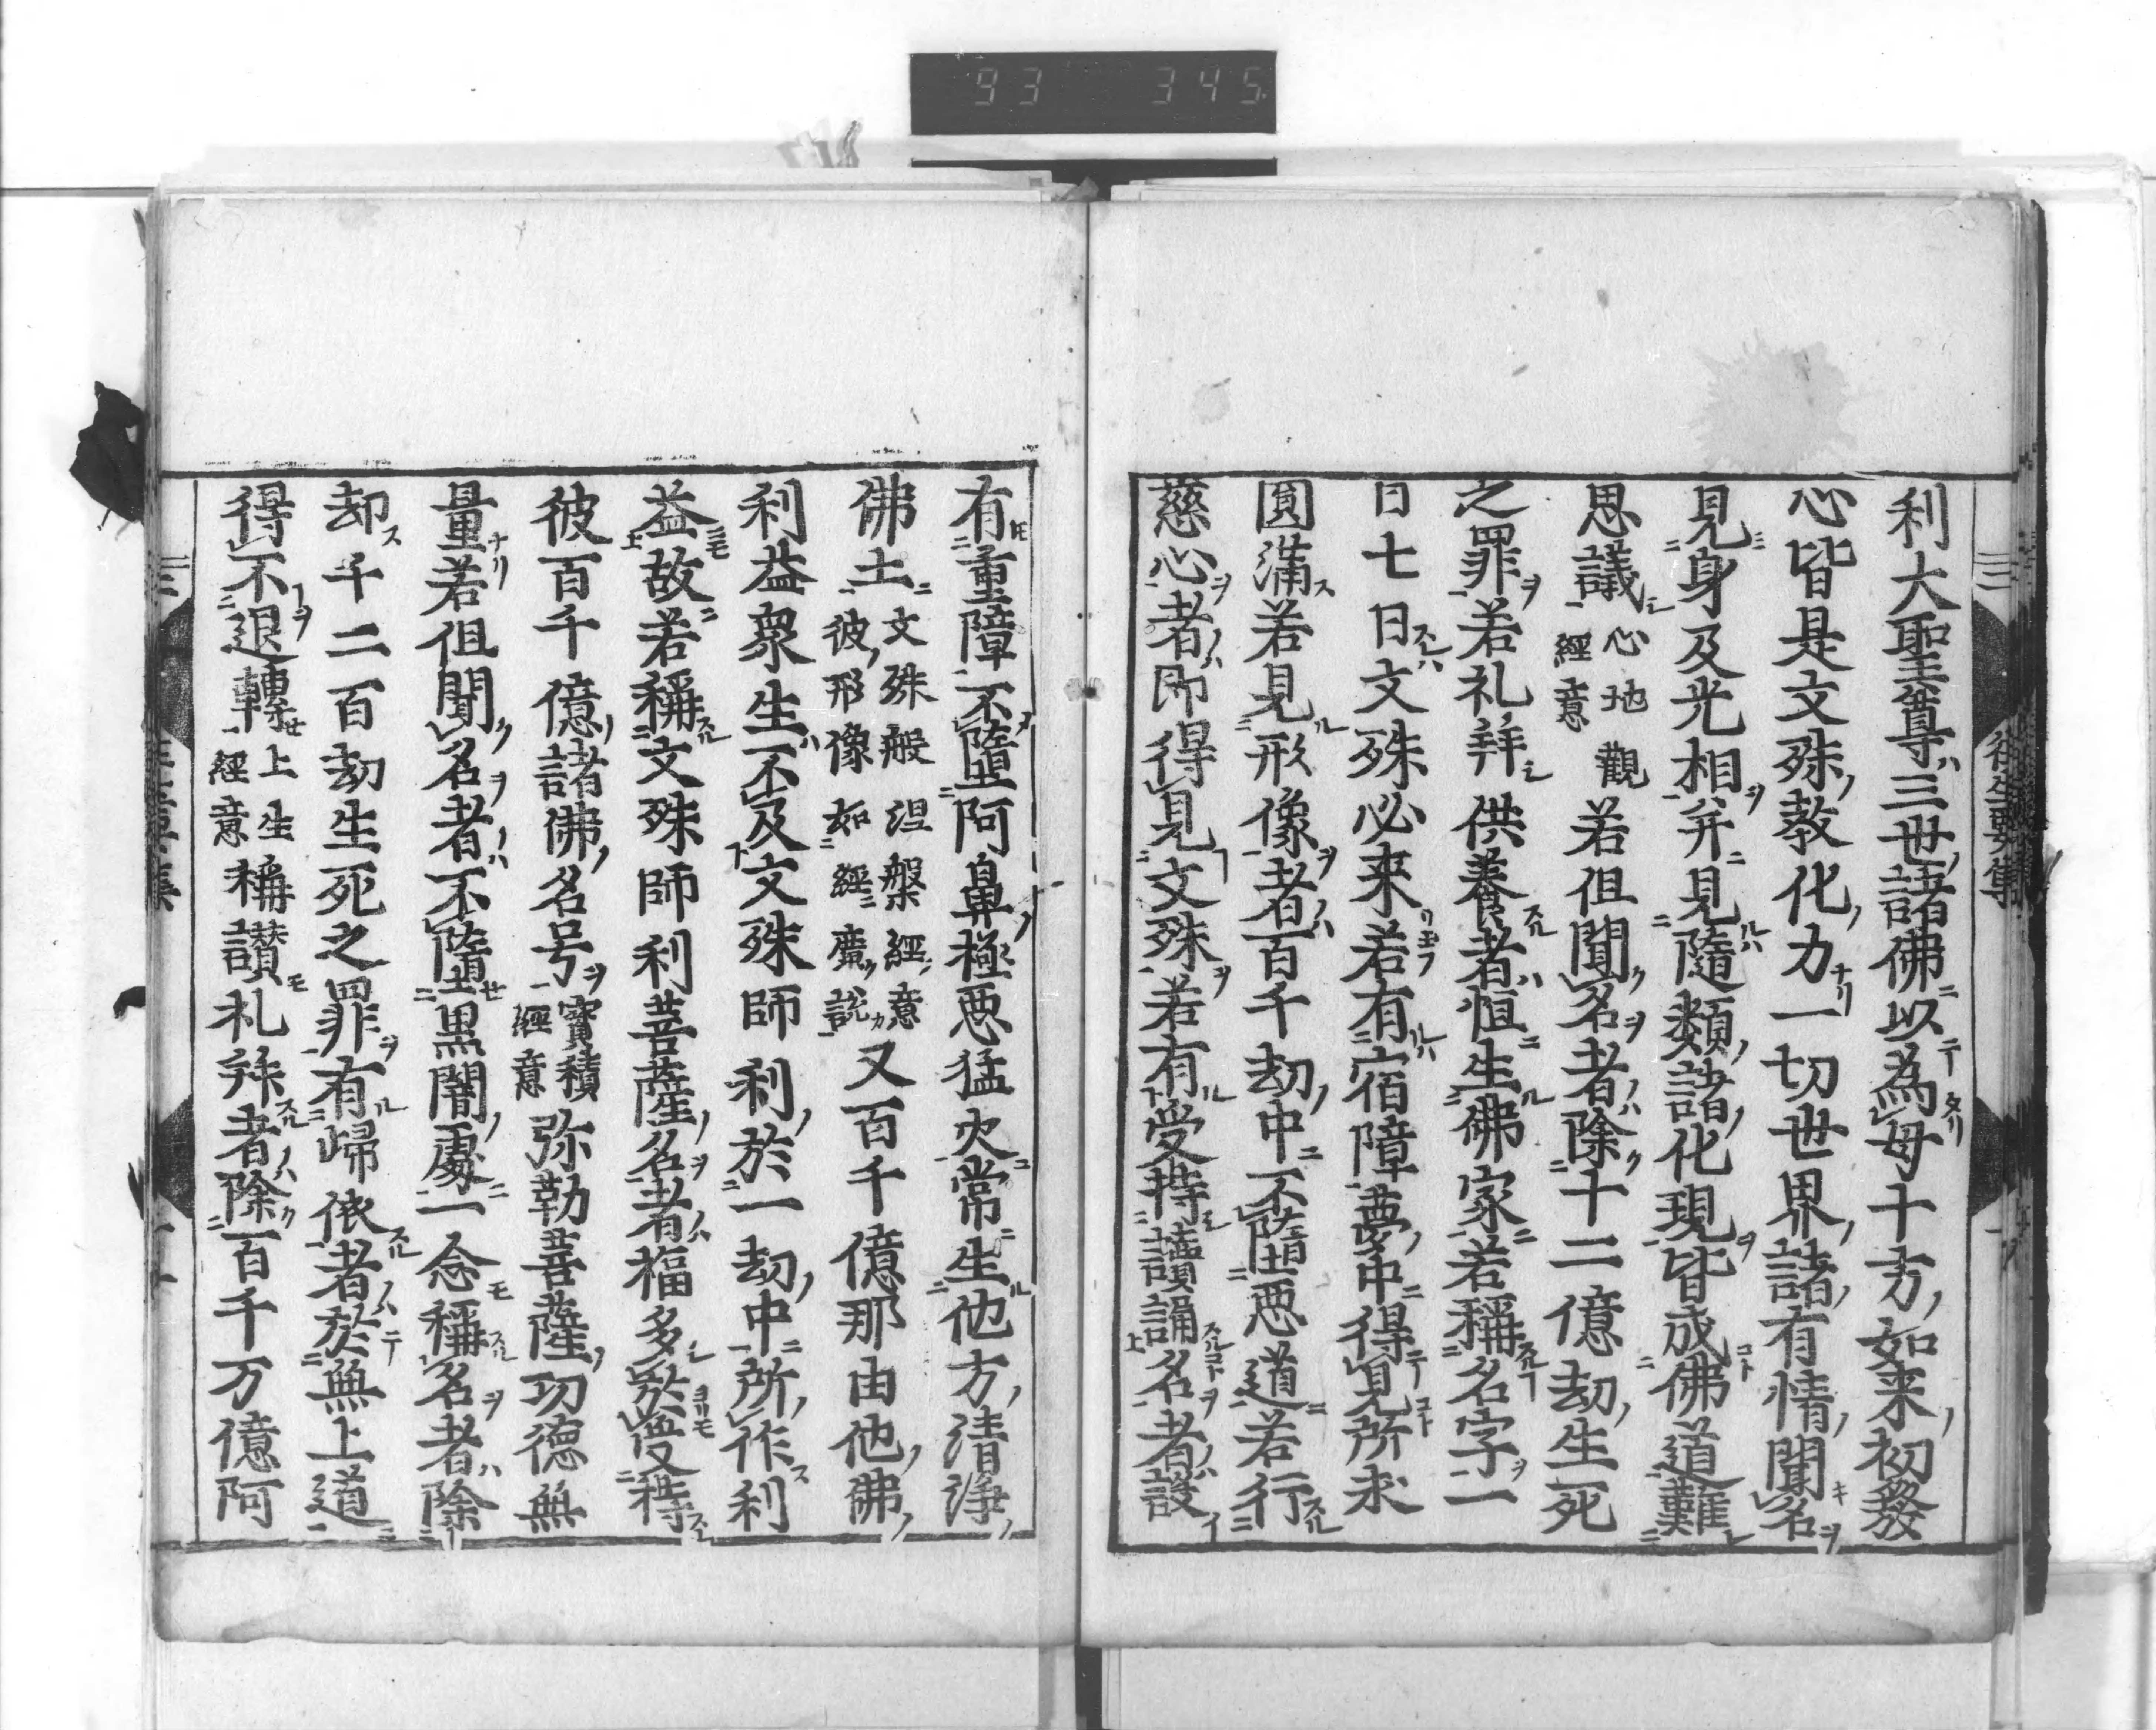 93 345
利大聖尊三世諸佛以為母十方如来初發
心皆是文殊教化力一切世界諸有情聞名
見身及光相并見隨類諸化現皆成佛道難
思議心地觀經意若但聞名者除十二億劫生死
之罪若礼拜供養者恒生佛家若稱名字一
日七日文殊必来若有宿障夢中得見所求
圓滿若見形像者百千劫中不墮悪道若行
慈心者即得見文殊若有受持讀誦名者設
有重障不墮阿鼻極悪猛火常生他方清淨
佛土文殊般涅槃經意彼形像如經廣說又百千億那由他佛
利益衆生不及文殊師利於一劫中所作利
益故若稱文殊師利菩薩名者福多於受持
彼百千億諸佛名号寶積經意弥勒菩薩功德無
量若但聞名者不墮黒闇處一念稱名者除
却千二百劫生死之罪有歸依者於無上道
得不退轉上生經意稱讃礼拜者除百千万億阿